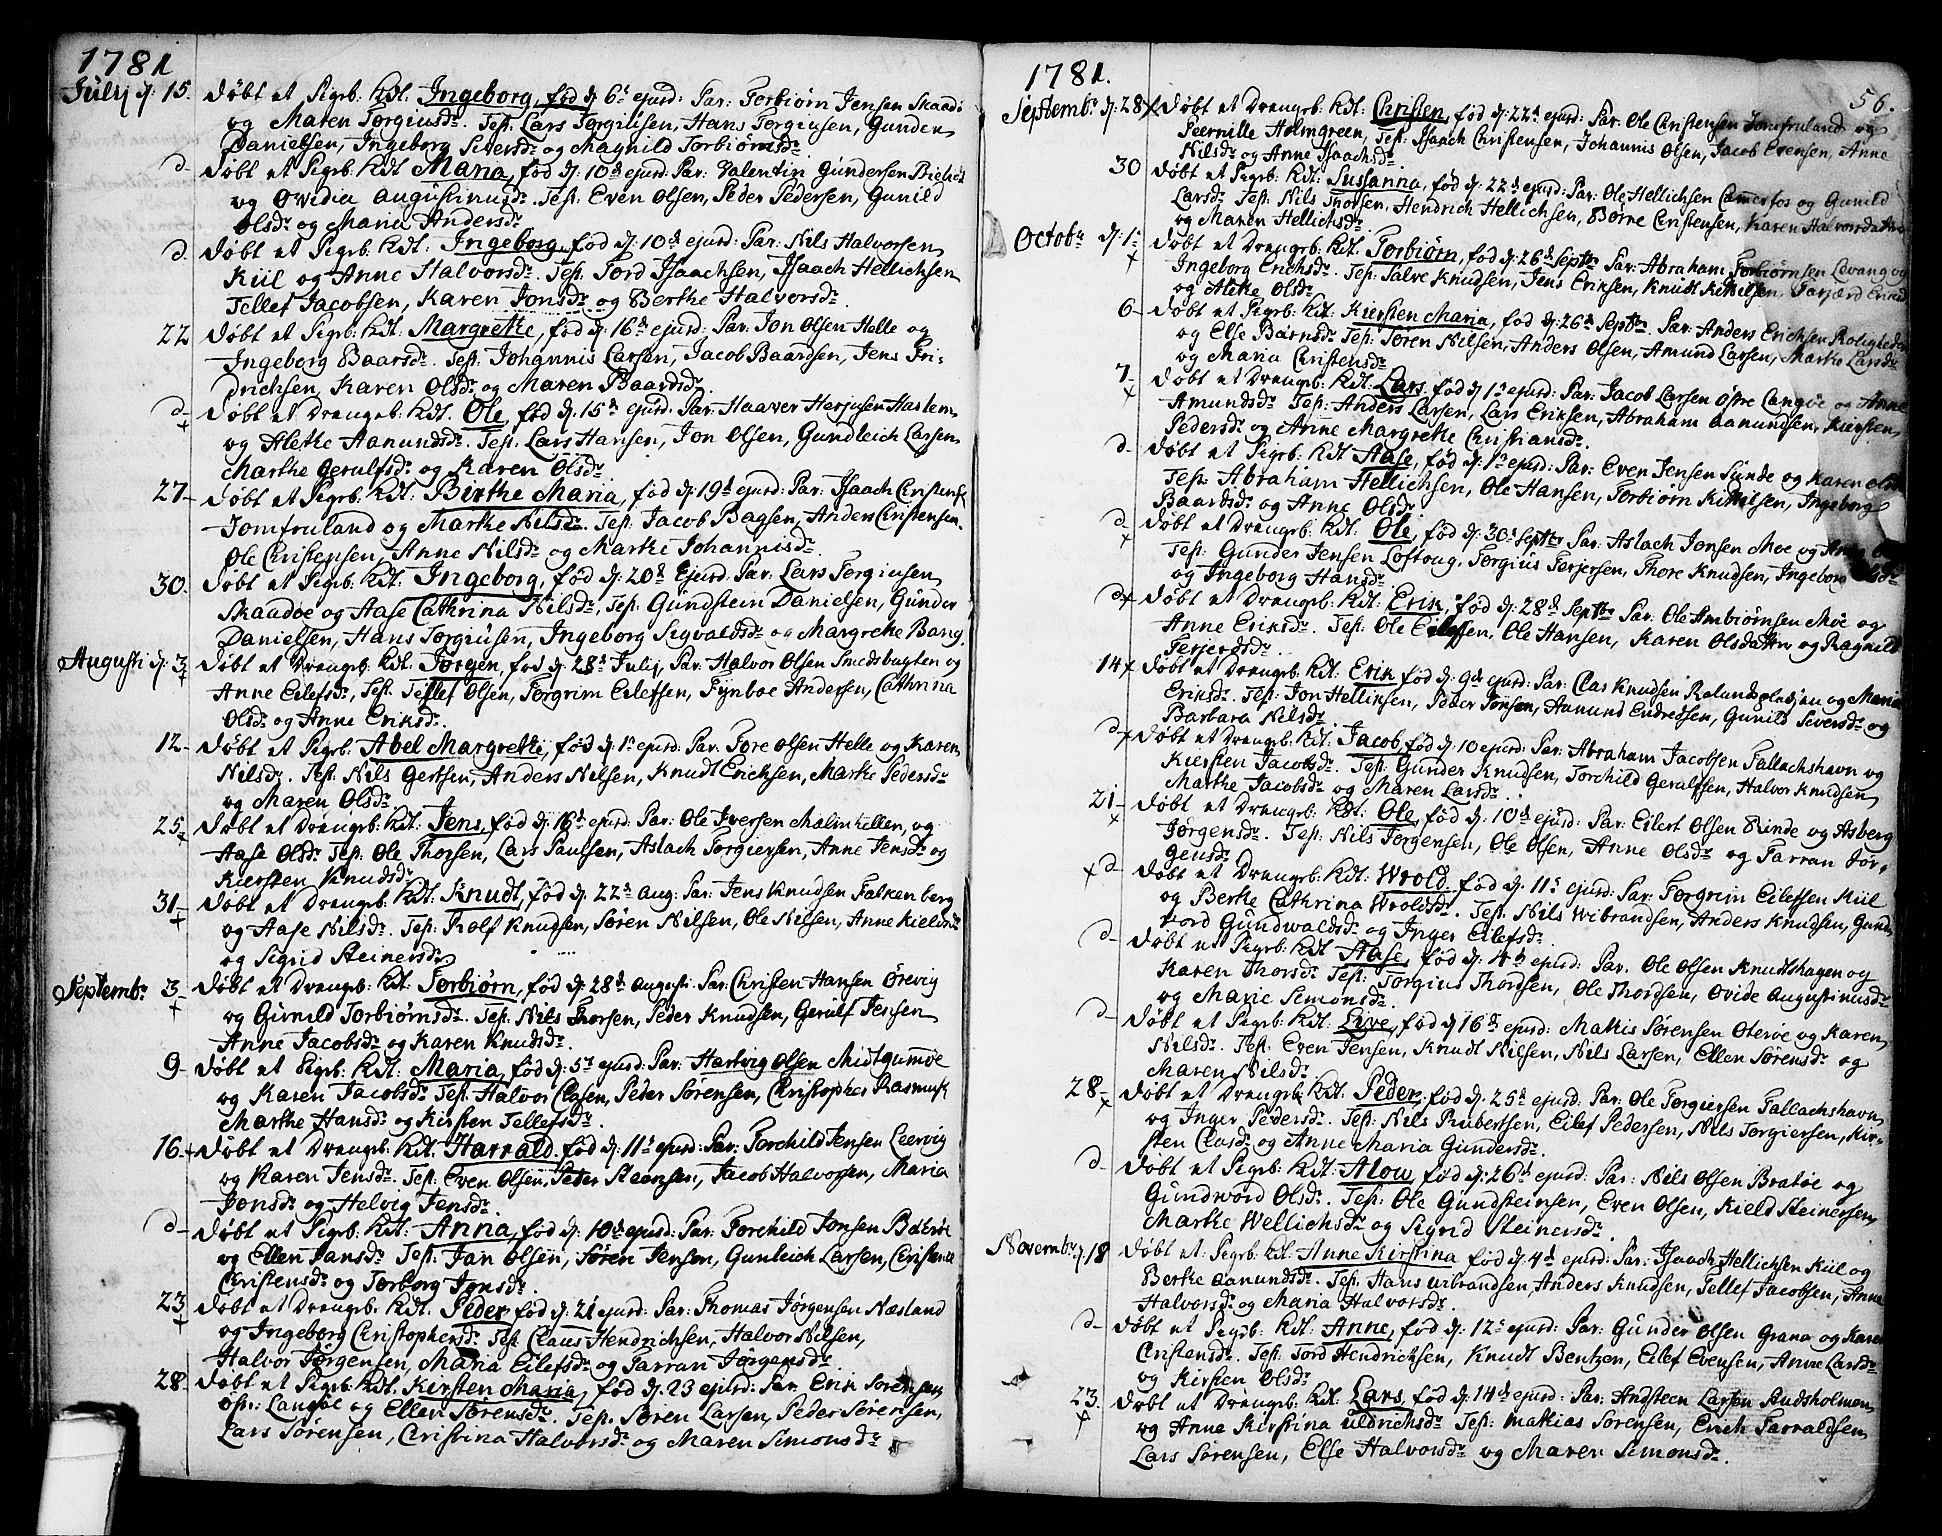 1781
Julij d: 15. døbt et Pigeb: Kdt: Ingeborg, fød d: 6t ejusd: Par: Torbiørn Jensen Skaadøe
og Maren Torgiusdr. Test: Lars Torgiusen, Hans Torgiusen, Gunder
Danielsen, Ingeborg Siversdr og Magnild Torbiørnsdr.
d- døbt et Pigeb: Kdt: Maria, fød d: 10d ejusd: Par: Valentin Gundersen
og Ovidia Augustinusdr. Test: Even Olsen, Peder Pedersen, Gunild
Olsdr og Maria Andersdr
d- døbt et Pigeb: Kdt: Ingeborg, fød d: 10d ejusd: Par: Nils Halvorsen
Kiil og Anne Halvorsdr. Test: Tord Isaachsen, Isaach Hellichsen
Tellef Jacobsen, Karen Jonsdr og Berthe Halvorsdr.
22 døbt et Pigeb: Kdt: Margrethe, fød d: 16d ejusd: Par: Jon Olsen Helle og
Ingeborg Baarsdr. Test: Johannis Larsen, Jacob Baardsen, Jens Fri-
drichsen, Karen Olsdr og Maren Baardsdr.
d- døbt et Drengeb: Kdt: Ole, fød d: 15d ejusd: Par: Haaver Herjusen Haslem
og Alethe Aamundsdr. Test: Lars Hansen, Jon Olsen, Gundleich Larsen
Marthe Gerulfsdr og Karen Olsdr
27- døbt et Pigeb: Kdt: Birthe Maria, fød d: 19d ejusd: Par: Isaach Christens:
Jomfruland og Marthe Nilsdr. Test: Jacob Bagsen, Anders Christensen
Ole Christensen, Anne Nilsdr og Marthe Johannisdr.
30. døbt et Pigeb: Kdt: Ingeborg, fød d: 20d ejusd: Par: Lars Torgiusen
Skaadøe og Aase Cathrina Nilsdr, Test: Gundstein Danielsen, Gunder
Danielsen, Hans Torgiusen, Ingeborg Sigvaldsdr og Margrethe Bang.
Augusti d: 3 døbt et Drengeb: Kdt: Jørgen, fød d: 28d Julij, Par: Halvor Olsen Smedsbugten og
Anne Eilefsdr, Test: Tellef Olsen, Torgrim Eilefsen, Fynboe Andersen, Cathrina
Olsdr og Anne Eriksdr.
12- døbt et Pigeb: Abel Margrethe, fød d: 1t ejusd: Par: Tore Olsen Helle og Karen
Nilsdr. Test: Nils Gertsen, Anders Nilsen, Knudt Erichsen, Marthe Pedersdr
og Maren Olsdr
25- døbt et Drengeb: Kdt: Jens, fød d: 16d ejusd: Par: Ole Iversen Malmhellen, og
Aase Olsdr. Test: Ole Thorsen, Lars Paulsen, Aslach Torgiersen, Anne Jensdr og
Kiersten Knudsdr
31- døbt et Drengeb: Kdt: Knudt, fød d: 22d Aug: Par: Jens Knudsen Falkenberg
og Aase Nilsdr. Test: Rolf Knudsen, Søren Nilsen, Ole Nilsen, Anne Kieldsdr
og Sigrid Steinersdr
Septembr 3- døbt et Drengeb: Kdt: Torbiørn, fød d: 28d Augusti Par: Christen Hansen Ørevig
og Gunild Torbiørnsdr. Test: Nils Thorsen, Peder Knudsen, Gerulf Jensen
Anne Jacobsdr og Karen Knudsdr.
9- døbt et Pigeb: Kdt: Maria, fød d: 5t ejusd: Par: Hartvig Olsen Midtgumøe
og Karen Jacobsdr Test: Halvor Clasen, Peder Sørensen, Christopher Rasmus:
Marthe Hansdr og Kirsten Tellefsdr.
16- døbt et Drengeb: Kdt: Harrald, fød d: 11t ejusd: Par: Torchild Jensen Leervig
og Karen Jensdr. Test: Even Olsen, Peter Steensen, Jacob Halvorsen, Maria
Jonsdr og Helvig Jensdr.
d- døbt et Pigeb: Kdt: Anna, fød d: 10d ejusd: Par: Torchild Jonsen
og Ellen Jansdr Test: Jan Olsen, Søren Jensen, Gunleich Larsen,
Christensdr og Torborg Jonsdr.
23 døbt et Drengeb: Kdt: Peder, fød d: 21 ejusd: Par: Thomas Jørgensen Næsland
og Ingeborg Christophersdr Test: Claus Hendrichsen, Halvor Nilsen,
Halvor Jørgensen, Maria Eilefsdr og Tarran Jørgensdr.
28- døbt et Pigeb: Kdt: Kirsten Maria, fød d: 23 ejusd: Par: Erik Sørensen
øst: Langøe og Ellen Sørensdr. Test: Søren Larsen, Peder Sørensen,
Lars Sørensen, Christina Halvorsdr og Maren Simonsdr
1781. 56.
Septembr d: 28 døbt et Drengeb: Kdt: Christen, fød d: 22d ejusd: Par: Ole Christensen Jomfruland og
Peernille Holmgreen, Test: Isaach Christensen, Johannis Olsen, Jacob Evensen, Anne
Nilsdr og Anne Isaachsdr.
30 døbt et Pigeb: Kdt: Sussanna, fød d: 22d ejusd: Par: Ole Hellichsen Camerfos og Gunild
Larsdr Test: Nils Thorsen, Hendrich Hellichsen, Børre Christensen, Karen Halvorsdatter
og Maren Hellichsdr.
Octobr d: 1- døbt et Drengeb: Kdt: Torbiørn, fød d: 26d Septr Par: Abraham Torbiørnsen Levang og
Ingeborg Erichsdr. Test: Salve Knudsen, Jens Eriksen, Knudt Kittilsen,
og Alethe Olsdr.
6- døbt et Pigeb: Kdt: Kiersten Maria, fød d: 26d Septbr Par: Anders Erichsen Roligheden
og Else Barnsdr Test: Søren Nilsen, Anders Olsen, Amund Larsen, Marthe Larsdr
og Maria Christensdr
7- døbt et Drengeb: Kdt: Lars, fød d: 1t ejusd: Par: Jacob Larsen østre Langøe og Anne
Amundsdr Test: Anders Larsen, Lars Eriksen, Abraham Aamundsen, Kiersten
Pedersdr og Anne Margrethe Christiansdr.
d- døbt et Pigeb: Kdt: Aase, fød d: 1t ejusd: Par: Even Jensen Sunde og Karen Olsdr
Test: Abraham Hellichsen, Ole Hansen, Torbiørn Kittilsen, Ingeborg
Baardsdr og Anne Olsdr
d- døbt et Drengeb: Kdt: Ole, fød d: 30t Septbr Par: Aslach Jonsen Moe og
Test: Gunder Jensen Loftoug, Torgius Torjersen, Thore Knudsen, Ingeborg Olsdr
og Ingeborg Hansdr
d+ døbt et Drengeb: Kdt: Erik, fød d: 28d Septbr Par: Ole Ambiørnsen Moe og
Anne Eriksdr. Test: Ole Eilefsen, Ole Hansen, Karen Olsdatter og Ragnild
Terjersdr.
14+ døbt et Drengeb: Kdt: Erik fød d: 9d ejusd: Par: Clas Knudsen Roland og Maria
Eriksdr. Test: Jon Helliksen, Peder Jonsen, Aamund Endredsen, Gunild Siversdr og
Barbara Nilsdr.
d+ døbt et Drengeb: Kdt: Jacob, fød d: 10 ejusd: Par: Abraham Jacobsen Fallachshavn og
Kiersten Jacobsdr. Test: Gunder Knudsen, Torchild Geralfsen, Halvor Knudsen
Marthe Jacobsdr og Maren Larsdr.
21- døbt et Drengeb: Kdt: Ole, fød d: 10d ejusd: Par: Eilert Olsen Rinde og Asberg
Jørgensdr. Test: Nils Jørgensen, Ole Olsen, Anne Olsdr og Tarran Jør-
gensdr
+ d- døbt et Drengeb: Kdt: Wrold, fød d: 11t ejusd: Par: Torgrim Eilefsen Kiil
og Berthe Cathrina Wroldsdr. Test: Nils Wibrandsen, Anders Knudsen, Gund-
vord Gundwaldsdr og Inger Eilefsdr.
d- døbt et Pigeb: Kdt: Aase, fød d: 4d ejusd: Par. Ole Olsen Knudshagen og
Karen Thorsdr Test: Torgius Thordsen, Ole Thordsen, Ovide Augustinusdr
og Marie Simonsdr.
d- døbt et Pigeb: Kdt: Live, fød d: 16d ejusd: Mathis Sørensen Oterøe og Karen
Nilsdr. Test: Even Jensen, Knudt Nilsen, Nils Larsen, Ellen Sørensdr og
Maren Nilsdr.
28- døbt et Drengeb: Kdt: Peder, fød d: 25d ejusd: Par: Ole Torgiersen Fallachshavn
og Inger Pedersdr. Test: Nils Rubertsen, Eilef Pedersen, Nils Torgiersen, Kir-
sten Clasdr og Anne Maria Gundersdr.
d- døbt et Pigeb: Kdt: Alou, fød d: 26d ejusd: Par: Nils Olsen Bratøe og
Gundword Olsdr. Test: Ole Gundsteinsen, Even Olsen, Kield Steinersen
Marthe Wellichsdr og Sigrid Steinersdr.
Novembr d: 18 døbt et Pigeb: Kdt: Anne Kirstina fød d: 4d ejusd: Par: Isaach Hellichsen Kiil og
Berthe Aamundsdr. Test: Hans Wibrandsen, Anders Knudsen, Tellef Jacobsen, Anne
Halvorsdr og Maria Halvorsdr.
d- døbt et Pigeb: Kdt: Anne, fød d: 12t ejusd: Par: Gunder Olsen Grana og Karen
Christensdr. Test: Tord Hendrichsen, Knudt Bentzen, Eilef Evensen, Anne Larsdr
og Kirsten Olsdr
23. døbt et Drengeb: Kdt: Lars, fød d: 14d ejusd: Par: Andsteen Larsen Audsholmen
og Anna Kirstina Uldrichsdr Test: Mathias Sørensen, Erich Tarraldsen
Lars Sørensen, Else Halvorsdr og Maren Simonsdr.